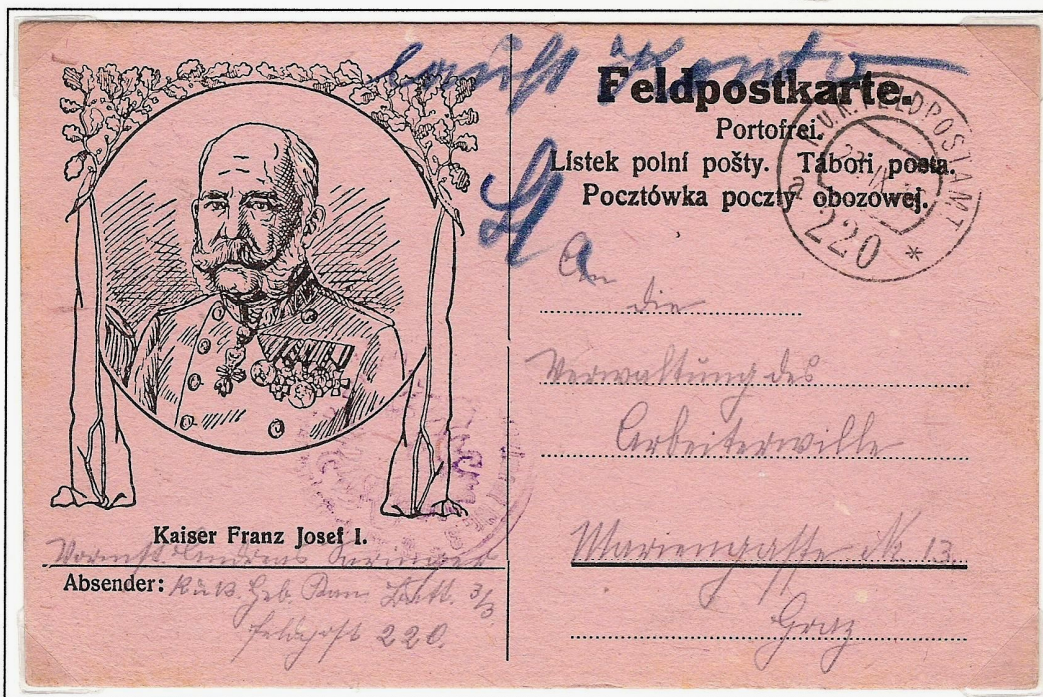 Feldpostkarte.
Portofrei.
Lístek polní pošty. Tábori posta.
Pocztówka poczty obozowej.
K.U.K. FELDPOSTAMT
a 220 *
An
die
Verwaltung des
Arbeiterwille
Mariengasse № 13
Graz
Kaiser Franz Josef I.
Andreas
Absender: K u K. Geb. Kan. Batt. 3/3
Feldpost 220.